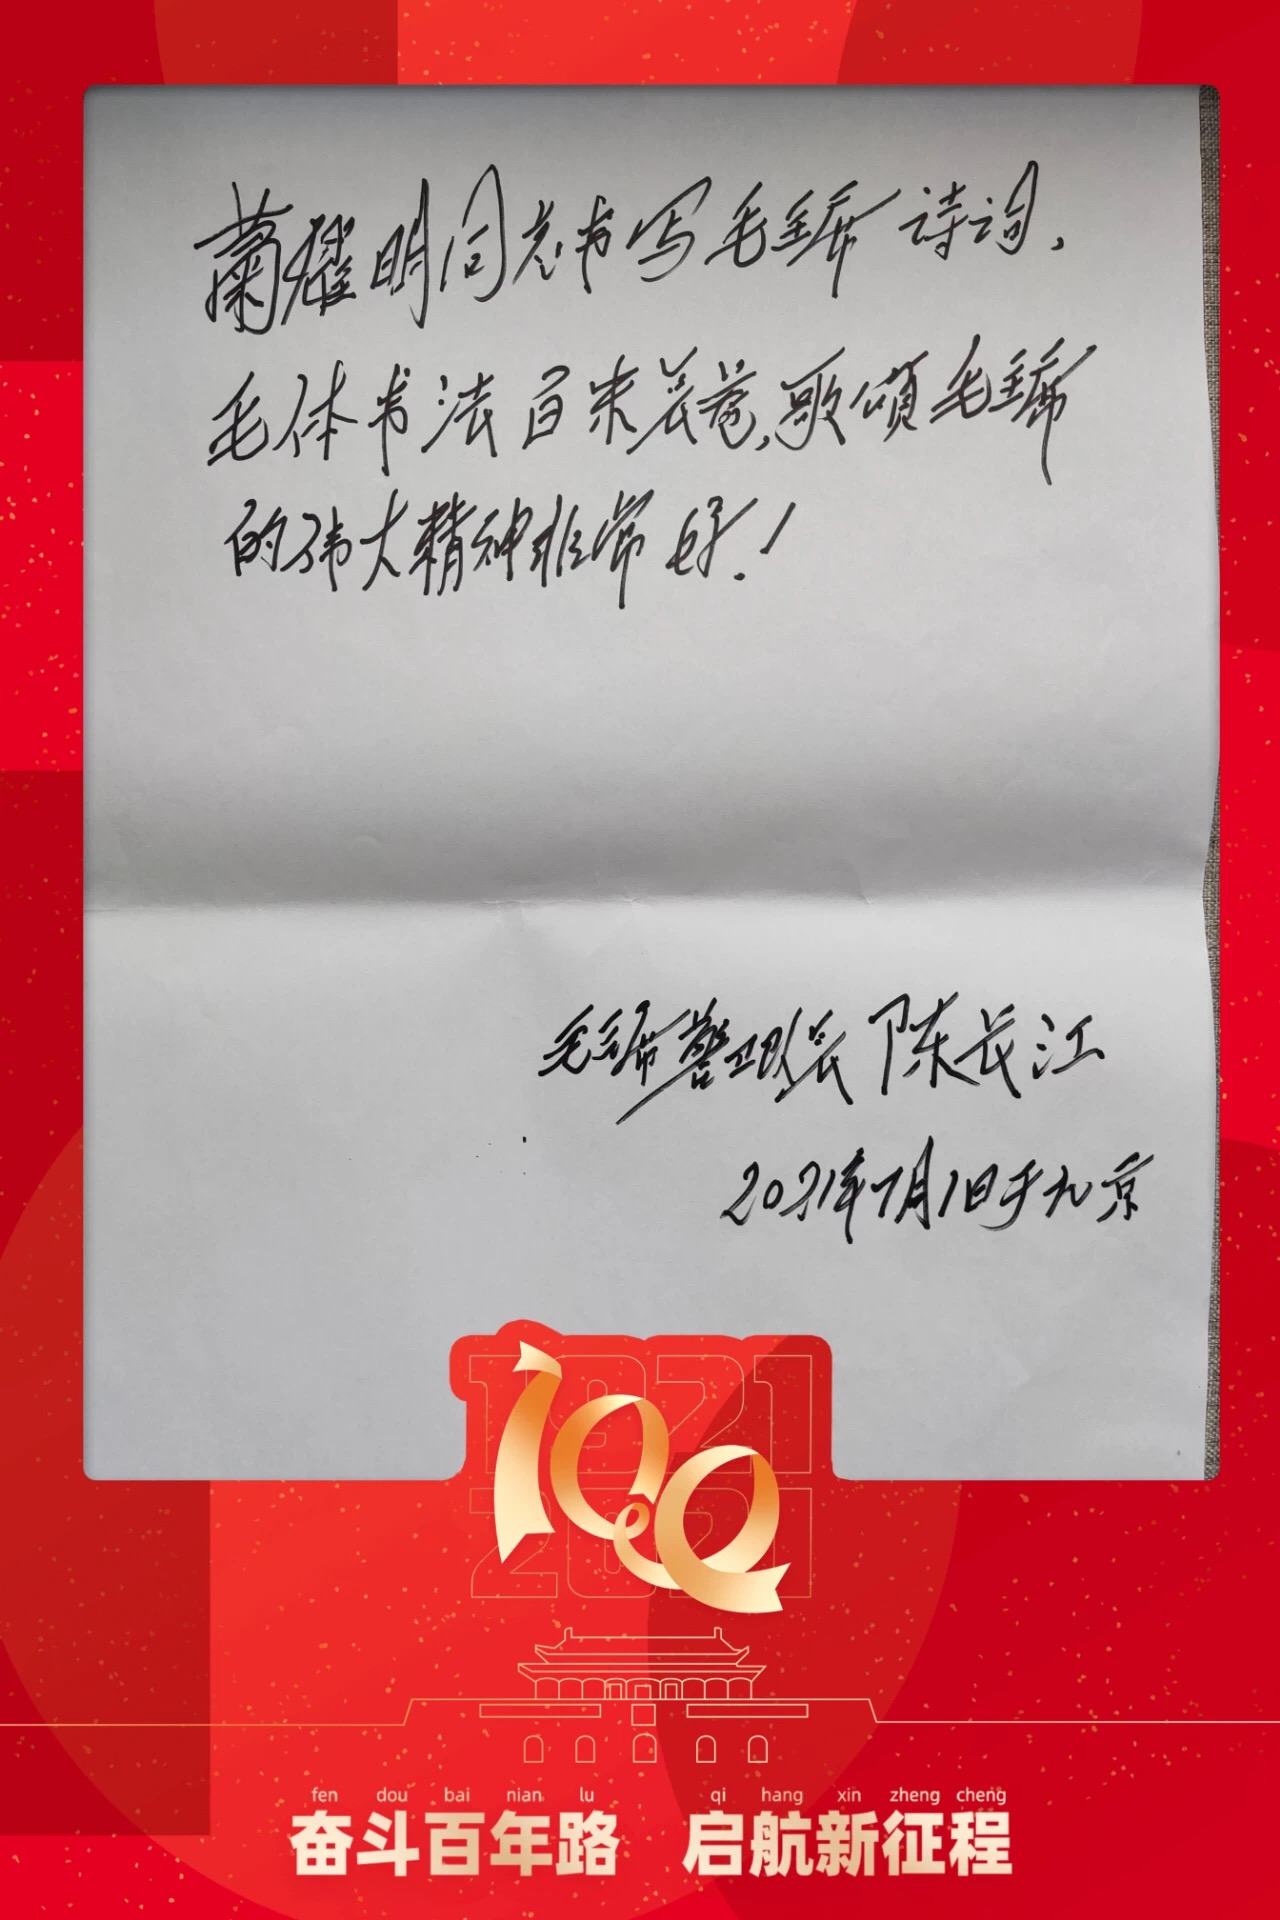 萧耀明同志书写毛主席诗词，
毛体书法百米长卷，歌颂毛主席
的伟大精神非常好！
毛主席警卫队长陈长江
2021年7月1日于北京
1921
100
2021
fen dou bai nian lu qi hang xin zheng cheng
奋斗百年路 启航新征程